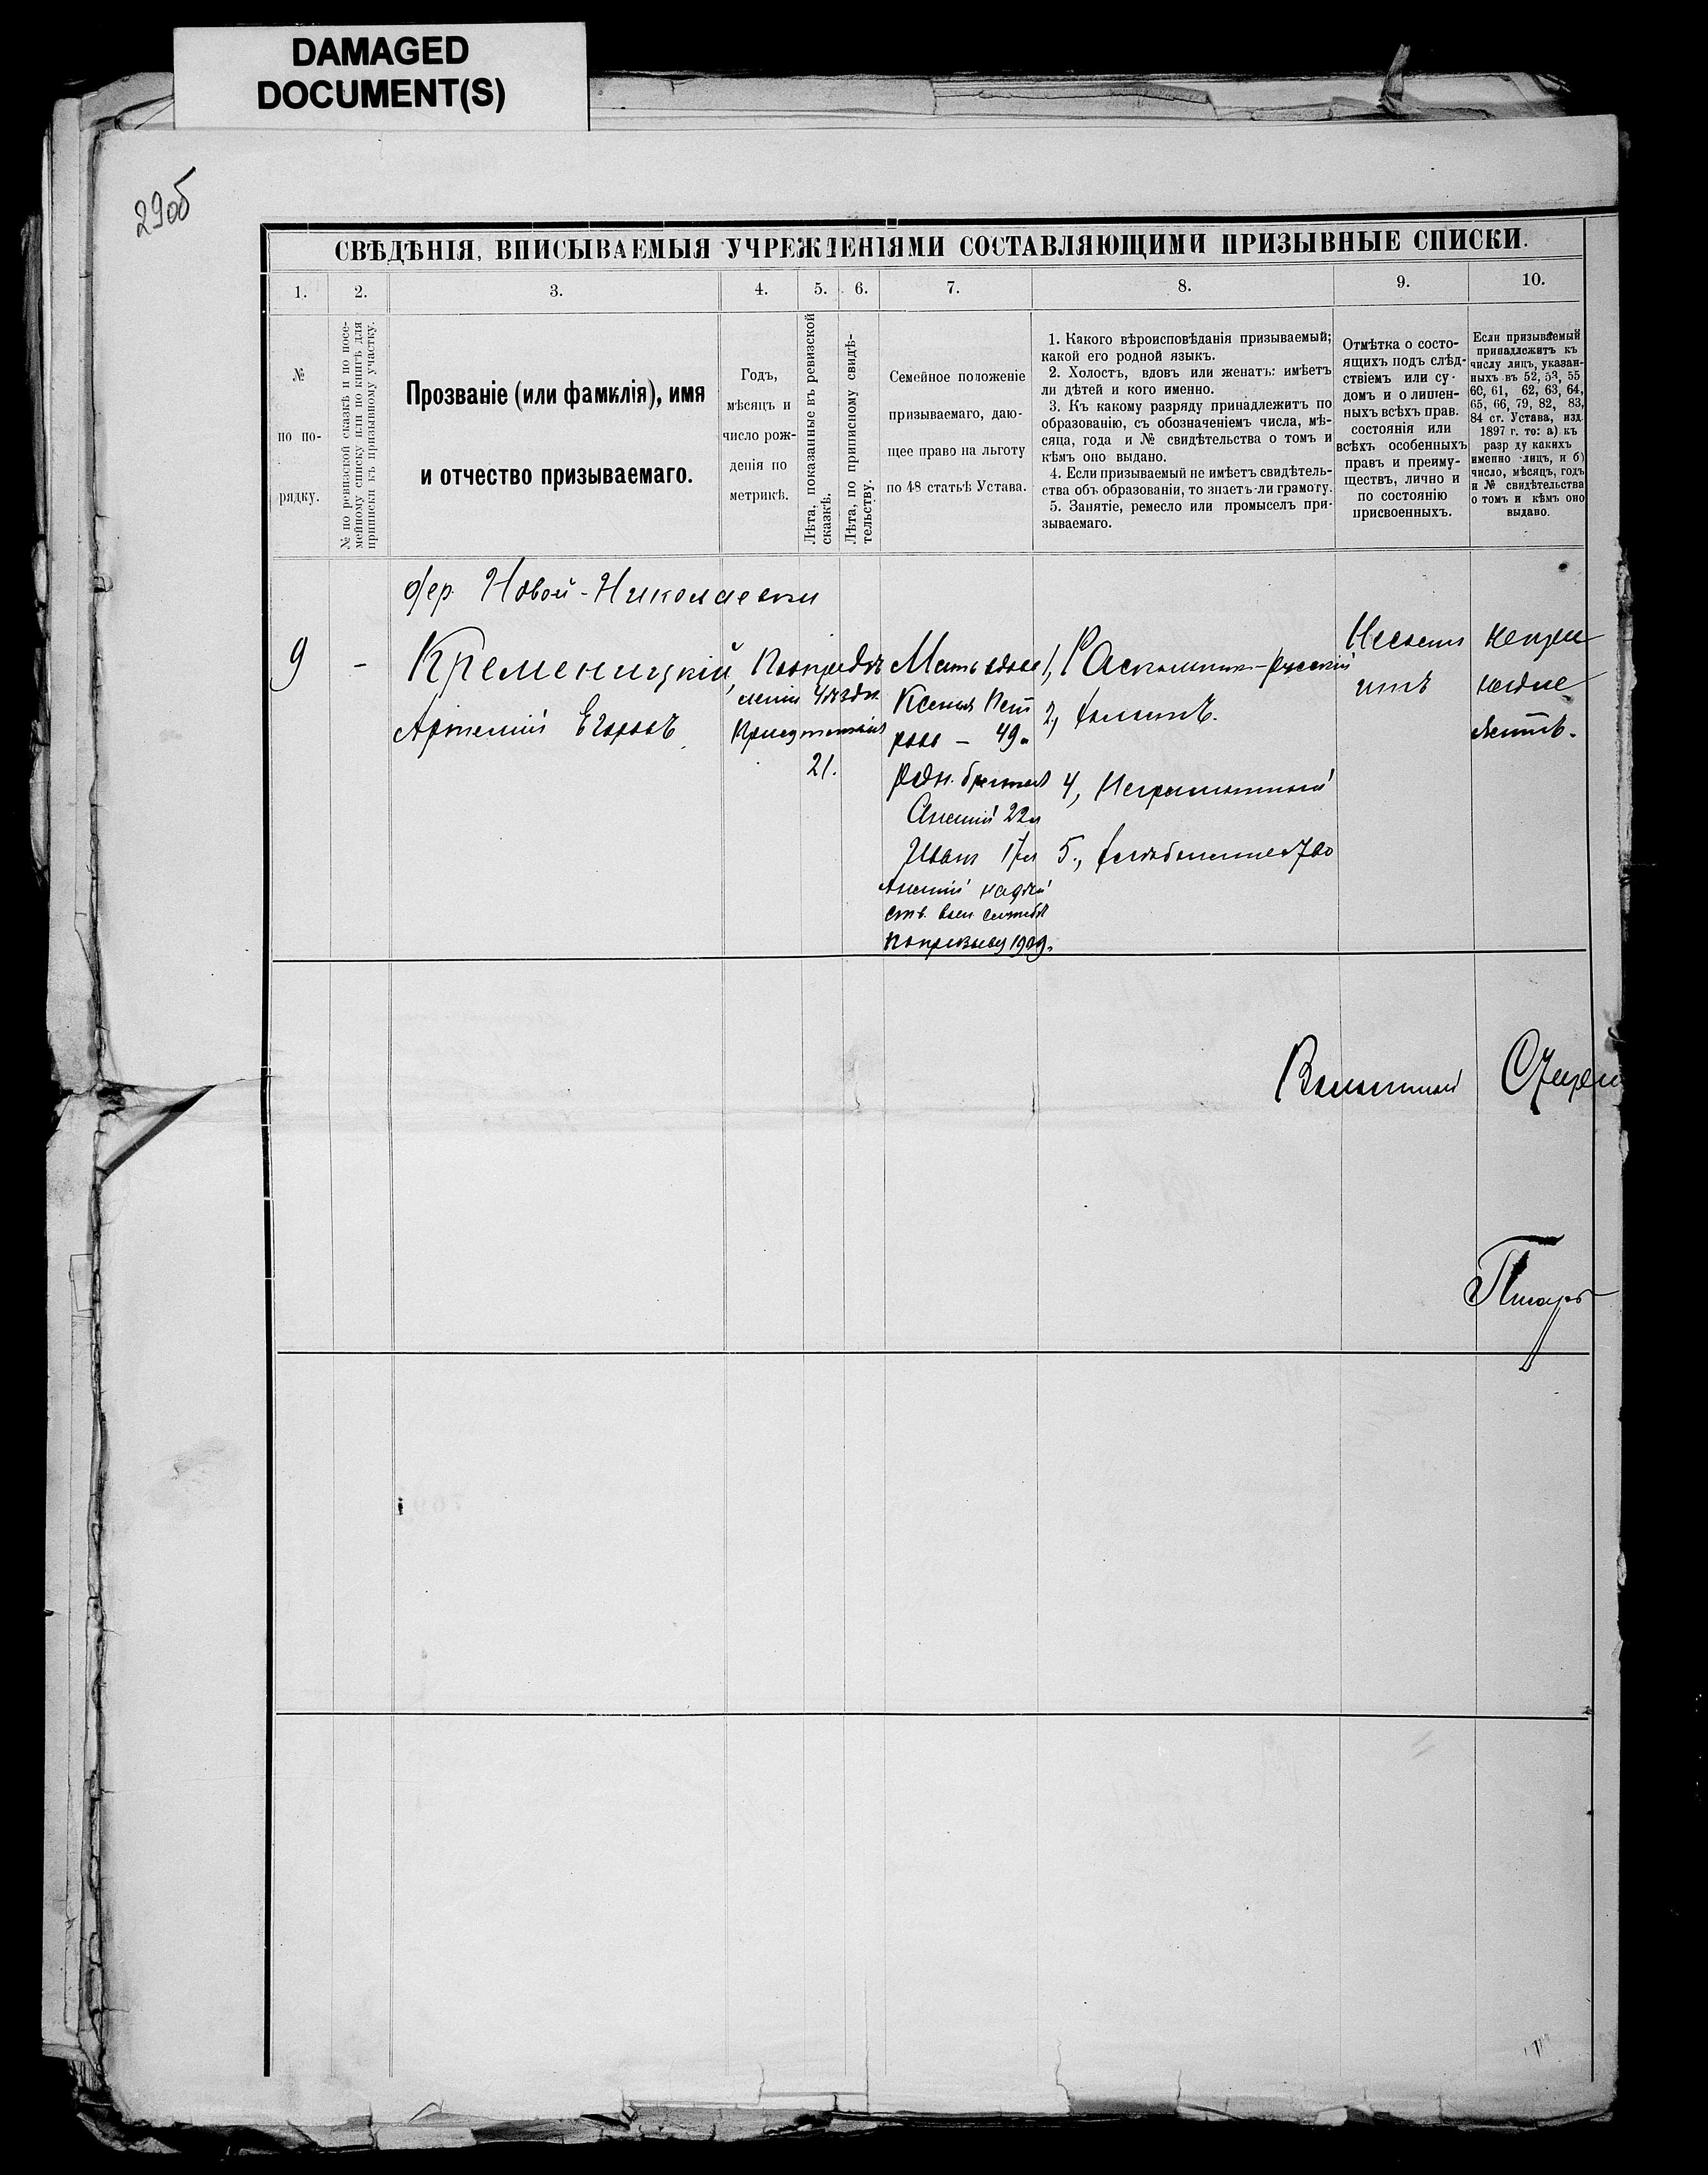 DAMAGED
DOCUMENT(S)
29об
СВѢДѢНІЯ, ВПИСЫВАЕМЫЯ УЧРЕЖДЕНІЯМИ СОСТАВЛЯЮЩИМИ ПРИЗЫВНЫЕ СПИСКИ.
1.
2.
3.
4.
5.
6.
7.
8.
9.
10.
№
по по-
рядку.
№ по ревизской сказкѣ и по посе-
мейному списку или по книгѣ для
приписки къ призывному участку.
Прозваніе (или фамилія), имя
и отчество призываемаго.
Годъ,
мѣсяцъ и
число рож-
денія по
метрикѣ.
Лѣта, показанные въ ревизской
сказкѣ.
Лѣта, по приписному свидѣ-
тельству.
Семейное положеніе
призываемаго, даю-
щее право на льготу
по 48 статьѣ Устава.
1. Какого вѣроисповѣданія призываемый;
какой его родной языкъ.
2. Холостъ, вдовъ или женатъ: имѣетъ
ли дѣтей и кого именно.
3. Къ какому разряду принадлежитъ по
образованію, съ обозначеніемъ числа, мѣ-
сяца, года и № свидѣтельства о томъ и
кѣмъ оно выдано.
4. Если призываемый не имѣетъ свидѣтель-
ства объ образованіи, то знаетъ-ли грамоту.
5. Занятіе, ремесло или промыселъ при-
зываемаго.
Отмѣтка о состо-
ящихъ подъ слѣд-
ствіемъ или су-
домъ и о лишен-
ныхъ всѣхъ прав.
состоянія или
всѣхъ особенныхъ
правъ и преиму-
ществъ, лично и
по состоянію
присвоенныхъ.
Если призываемый
принадлежитъ къ
числу лицъ, указан-
ныхъ въ 52, 53, 55
60, 61, 62, 63, 64,
65, 66, 79, 82, 83,
84 ст. Устава, изд.
1897 г. то: а) къ
разр ду какихъ
именно лицъ, и б)
число, мѣсяцъ, годъ
и № свидѣтельства
о томъ и кѣмъ оно
выдано.
дер. Новой-Николаевки
9
-
Кременицкій,
Артемій Егоровъ
По опредѣ
ленію Уѣздн.
Присутствія
21.
Мать вдова
Ксенія Пет
рова - 49л
Родн. братья
22л
Иванъ 17л
на дѣй
ств. воен службѣ
по призыву 1909.
1, Раскольникъ-русскій
2, холостъ.
4, Неграмотный
5., хлѣбопашество
Не состо
итъ
не при
надле
житъ.
Волостной Старши
Писарь